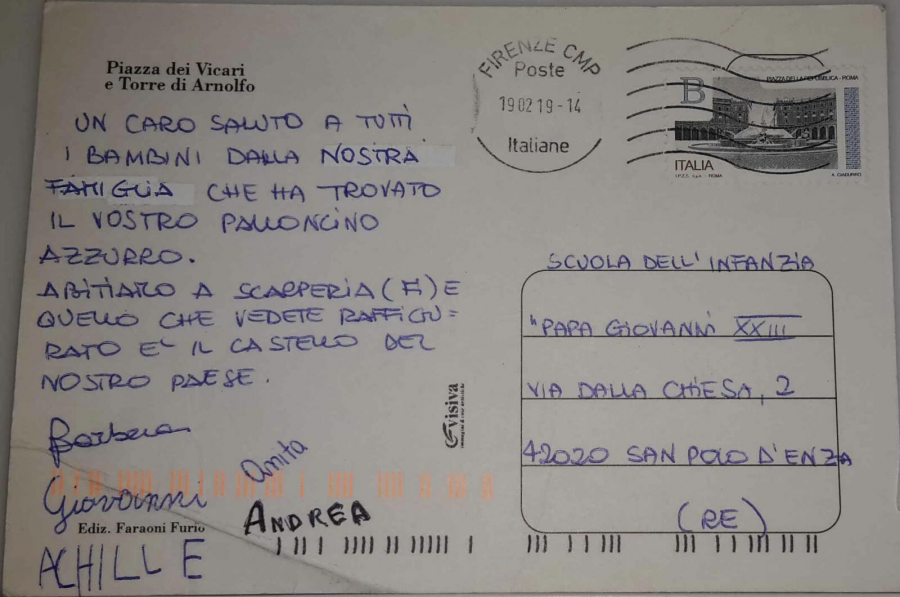 Piazza dei Vicari
e Torre di Arnolfo
UN CARO SALUTO A TUTTI
I BAMBINI DALLA NOSTRA
FAMIGLIA CHE HA TROVATO
IL VOSTRO PALLONCINO
AZZURRO.
ABITIAMO A SCARPERIA (FI) E
QUELLO CHE VEDETE RAFFIGU=
RATO E' IL CASTELLO DEL
NOSTRO PAESE.
Barbara
Anita
Giovanni
ANDREA
Ediz. Faraoni Furio
ACHILLE
visiva
FIRENZE CMP
Poste
19.02.19-14
Italiane
B
PIAZZA DELLA REPUBBLICA - ROMA
ITALIA
I.P.Z.S. S.p.A. - ROMA
SCUOLA DELL'INFANZIA
"PAPA GIOVANNI XXIII
VIA DALLA CHIESA, 2
42020 SAN POLO D'ENZA
(RE)